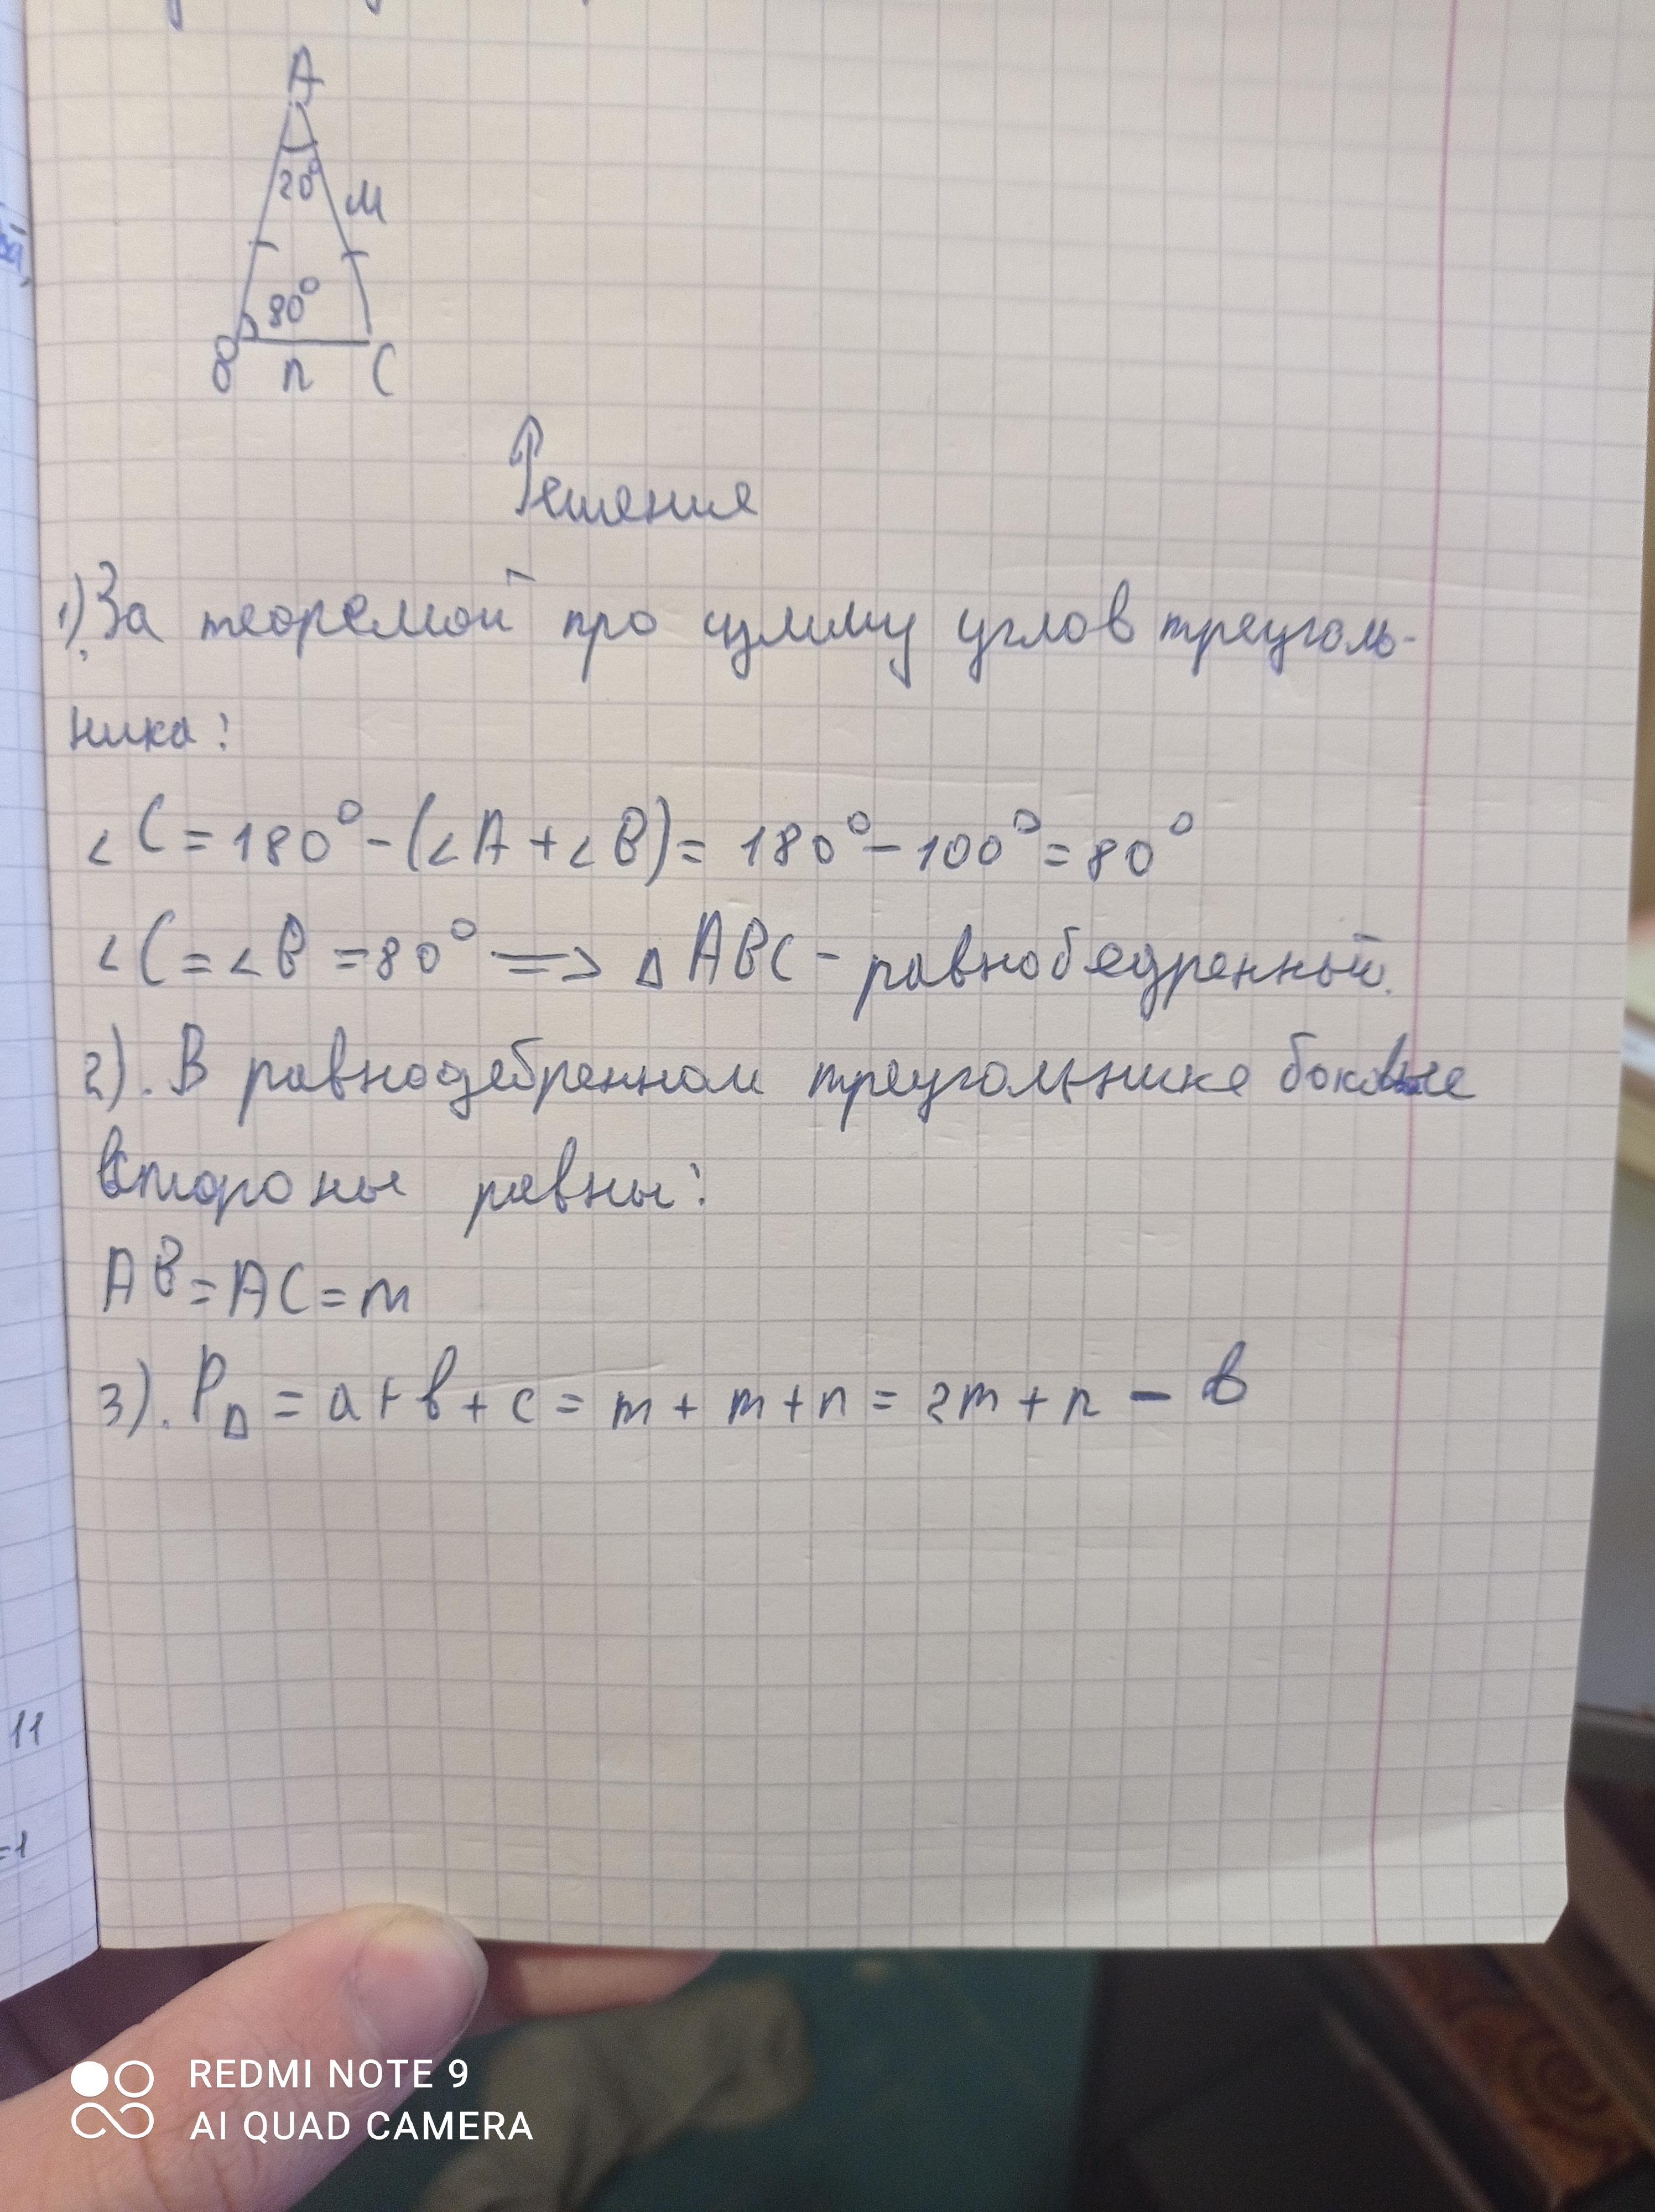 A
20°
м
80°
В n C
Решения
1). За теоремой про сумму углов треуголь-
ника:
∠C = 180° - (∠A + ∠B) = 180° - 100° = 80°
∠C = ∠B = 80° => ΔABC - равнобедренный.
2). В равнодебренном треугольнике боковые
стороны равны:
AB = AC = m
3). PΔ = a + b + c = m + m + n = 2m + n - в
11
=1
REDMI NOTE 9
AI QUAD CAMERA